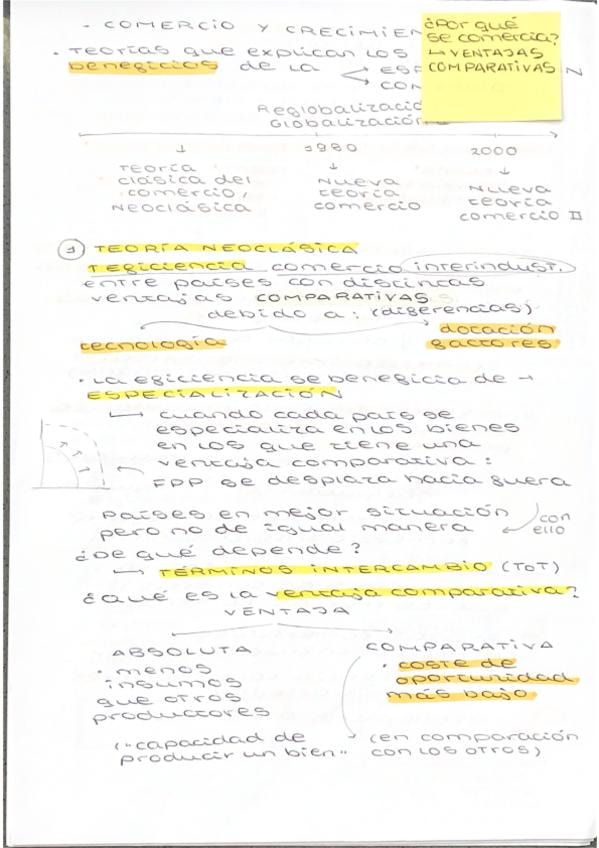 - COMERCIO Y CRECIMIEN
¿Por qué
se comercia?
↳ VENTAJAS
COMPARATIVAS
• Teorías que explican los
beneficios de la < ESP
CON
N
Reglobalizació
Globalización
1980
2000
Teoría
clásica del
comercio,
Neoclásica
Nueva
teoría
comercio
Nueva
teoría
comercio II
1 TEORÍA NEOCLÁSICA
↑ eficiencia comercio interindust.
entre países con distintas
ventajas COMPARATIVAS
debido a: (diferencias)
tecnología
dotación
factores
• La eficiencia se beneficia de →
ESPECIALIZACIÓN
↳ cuando cada país se
especializa en los bienes
en los que tiene una
ventaja comparativa:
FPP se desplaza hacia fuera
países en mejor situación
pero no de igual manera
con
ello
¿De qué depende?
↳ TÉRMINOS INTERCAMBIO (TOT)
¿Qué es la ventaja comparativa?
VENTAJA
ABSOLUTA
• menos
insumos
que otros
productores
("capacidad de
producir un bien"
COMPARATIVA
• coste de
oportunidad
más bajo
(en comparación
con los otros)